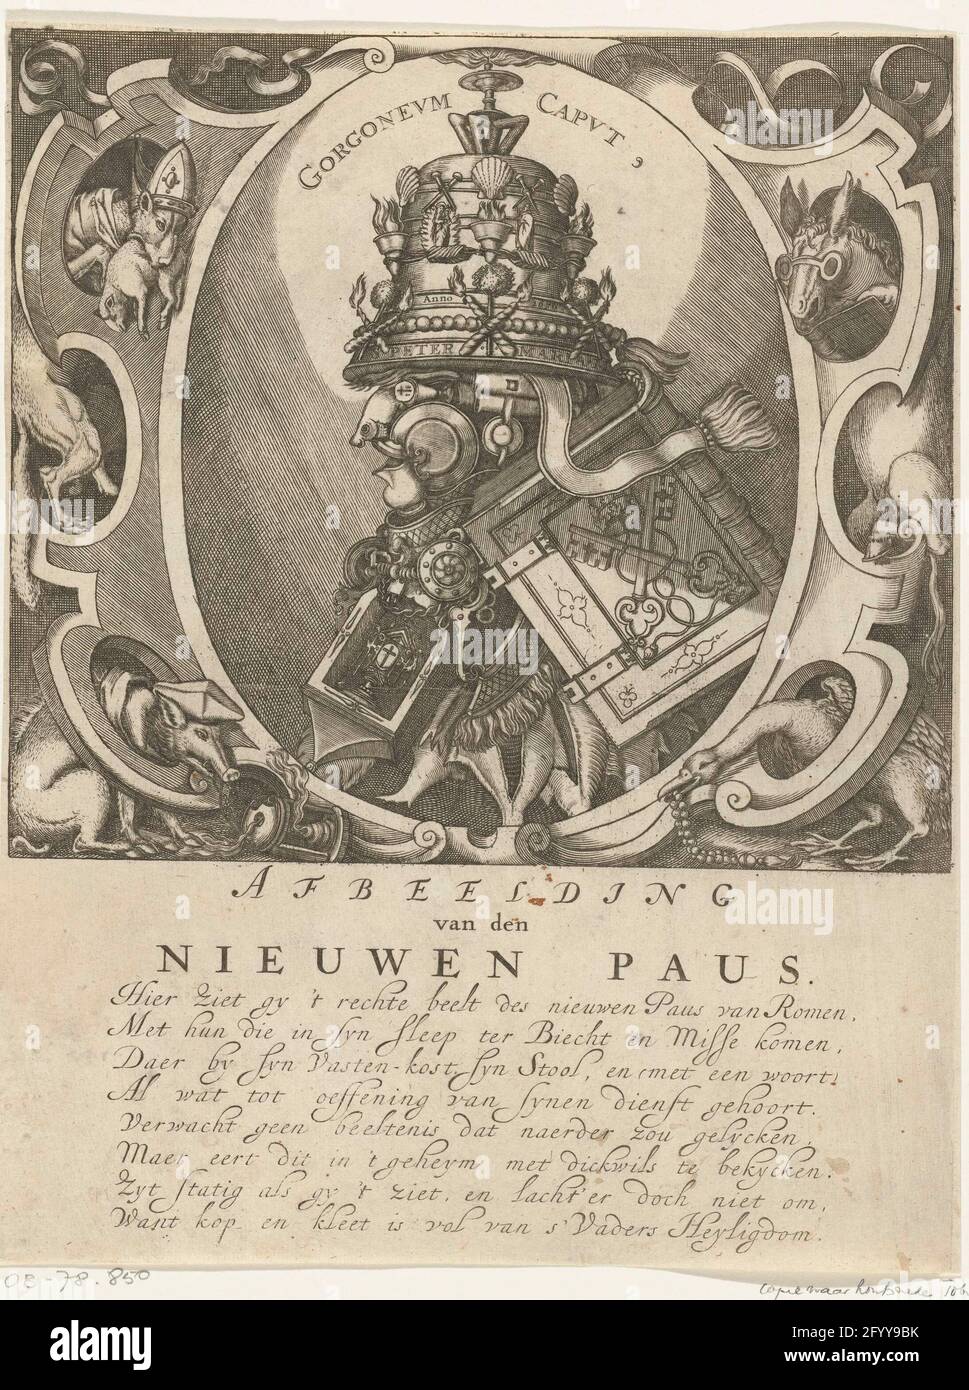 GORGONEVM CAPVT
Anno
PETER MARIA
AFBEELDING
van den
NIEUWEN PAUS.
Hier ziet gy 't rechte beelt des nieuwen Paus van Romen,
Met hun die in syn sleep ter Biecht en Misse komen,
Daer by syn Vasten-kost, syn Stool, en met een woort,
Al wat tot oeffening van synen dienst gehoort.
Verwacht geen beeltenis dat naerder zou gelycken,
Maer eert dit in 't geheym met dickwils te bekycken.
Zyt statig als gy 't ziet, en lacht'er doch niet om,
Want kop en kleet is vol van s'Vaders Heyligdom.
OB-78.850
copie naar houtsnede Tob
alamy
Image ID: 2FYY9BK
www.alamy.com